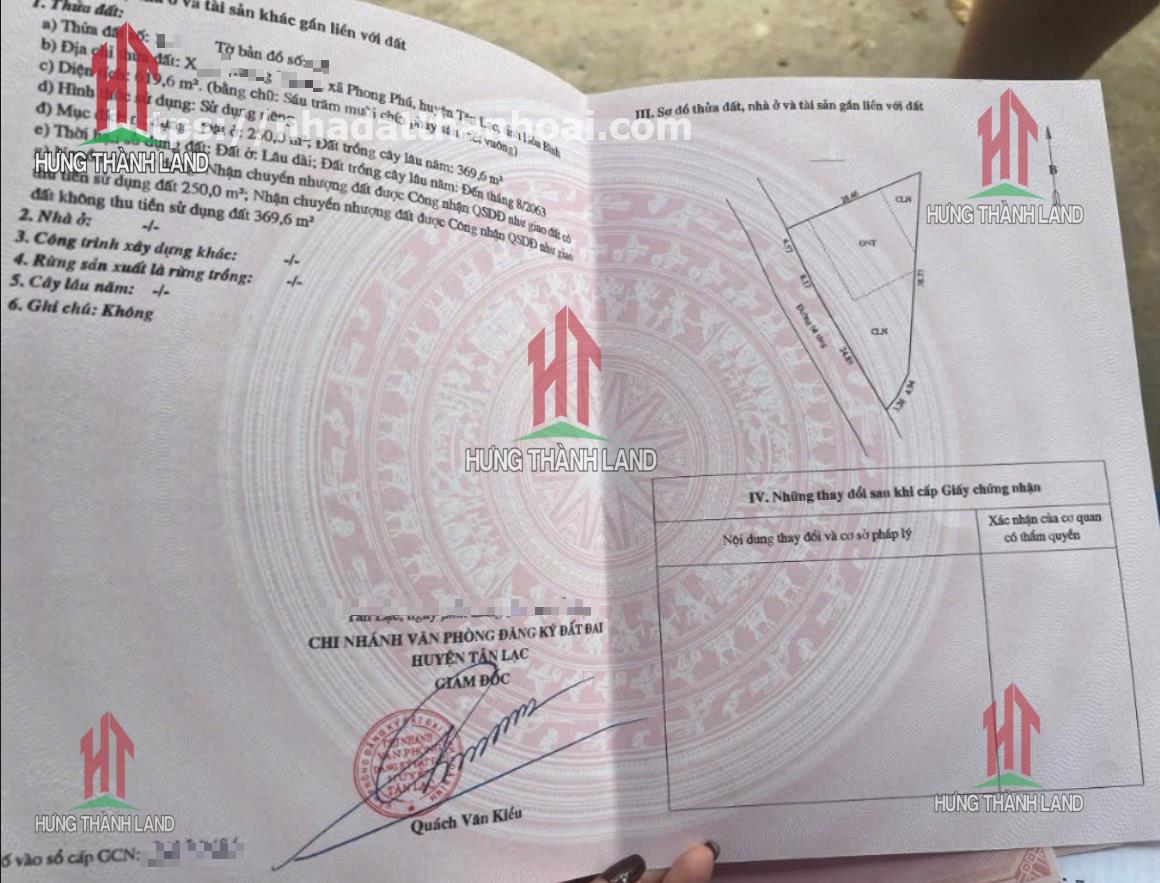 ở và tài sản khác gắn liền với đất
1. Thửa đất:
a) Thửa đất số: Tờ bản đồ số:
b) Địa chỉ thửa đất: X xã Phong Phú, huyện Tân Lạc, tỉnh Hòa Bình
c) Diện tích: 619,6 m². (bằng chữ: Sáu trăm mười chín phẩy sáu mét vuông)
d) Hình thức sử dụng: Sử dụng riêng
đ) Mục đích sử dụng: Đất ở: 250,0 m²; Đất trồng cây lâu năm: 369,6 m²
e) Thời hạn sử dụng đất: Đất ở: Lâu dài; Đất trồng cây lâu năm: Đến tháng 8/2063
Nhận chuyển nhượng đất được Công nhận QSDĐ như giao đất có
thu tiền sử dụng đất 250,0 m²; Nhận chuyển nhượng đất được Công nhận QSDĐ như giao
đất không thu tiền sử dụng đất 369,6 m²
2. Nhà ở: -/-
3. Công trình xây dựng khác: -/-
4. Rừng sản xuất là rừng trồng: -/-
5. Cây lâu năm: -/-
6. Ghi chú: Không
https://nhadathanhoai.com
HƯNG THÀNH LAND
HT
HƯNG THÀNH LAND
CHI NHÁNH VĂN PHÒNG ĐĂNG KÝ ĐẤT ĐAI
HUYỆN TÂN LẠC
GIÁM ĐỐC
CHI NHÁNH
VĂN PHÒNG
ĐĂNG KÝ ĐẤT ĐAI
HUYỆN
TÂN LẠC
Quách Văn Kiều
HƯNG THÀNH LAND
số vào sổ cấp GCN:
III. Sơ đồ thửa đất, nhà ở và tài sản gắn liền với đất
B
HƯNG THÀNH LAND
CLN
ONT
4,57
8,37
Đường bê tông
24,89
CLN
3,26
4,94
IV. Những thay đổi sau khi cấp Giấy chứng nhận
Nội dung thay đổi và cơ sở pháp lý
Xác nhận của cơ quan
có thẩm quyền
HƯNG THÀNH LAND